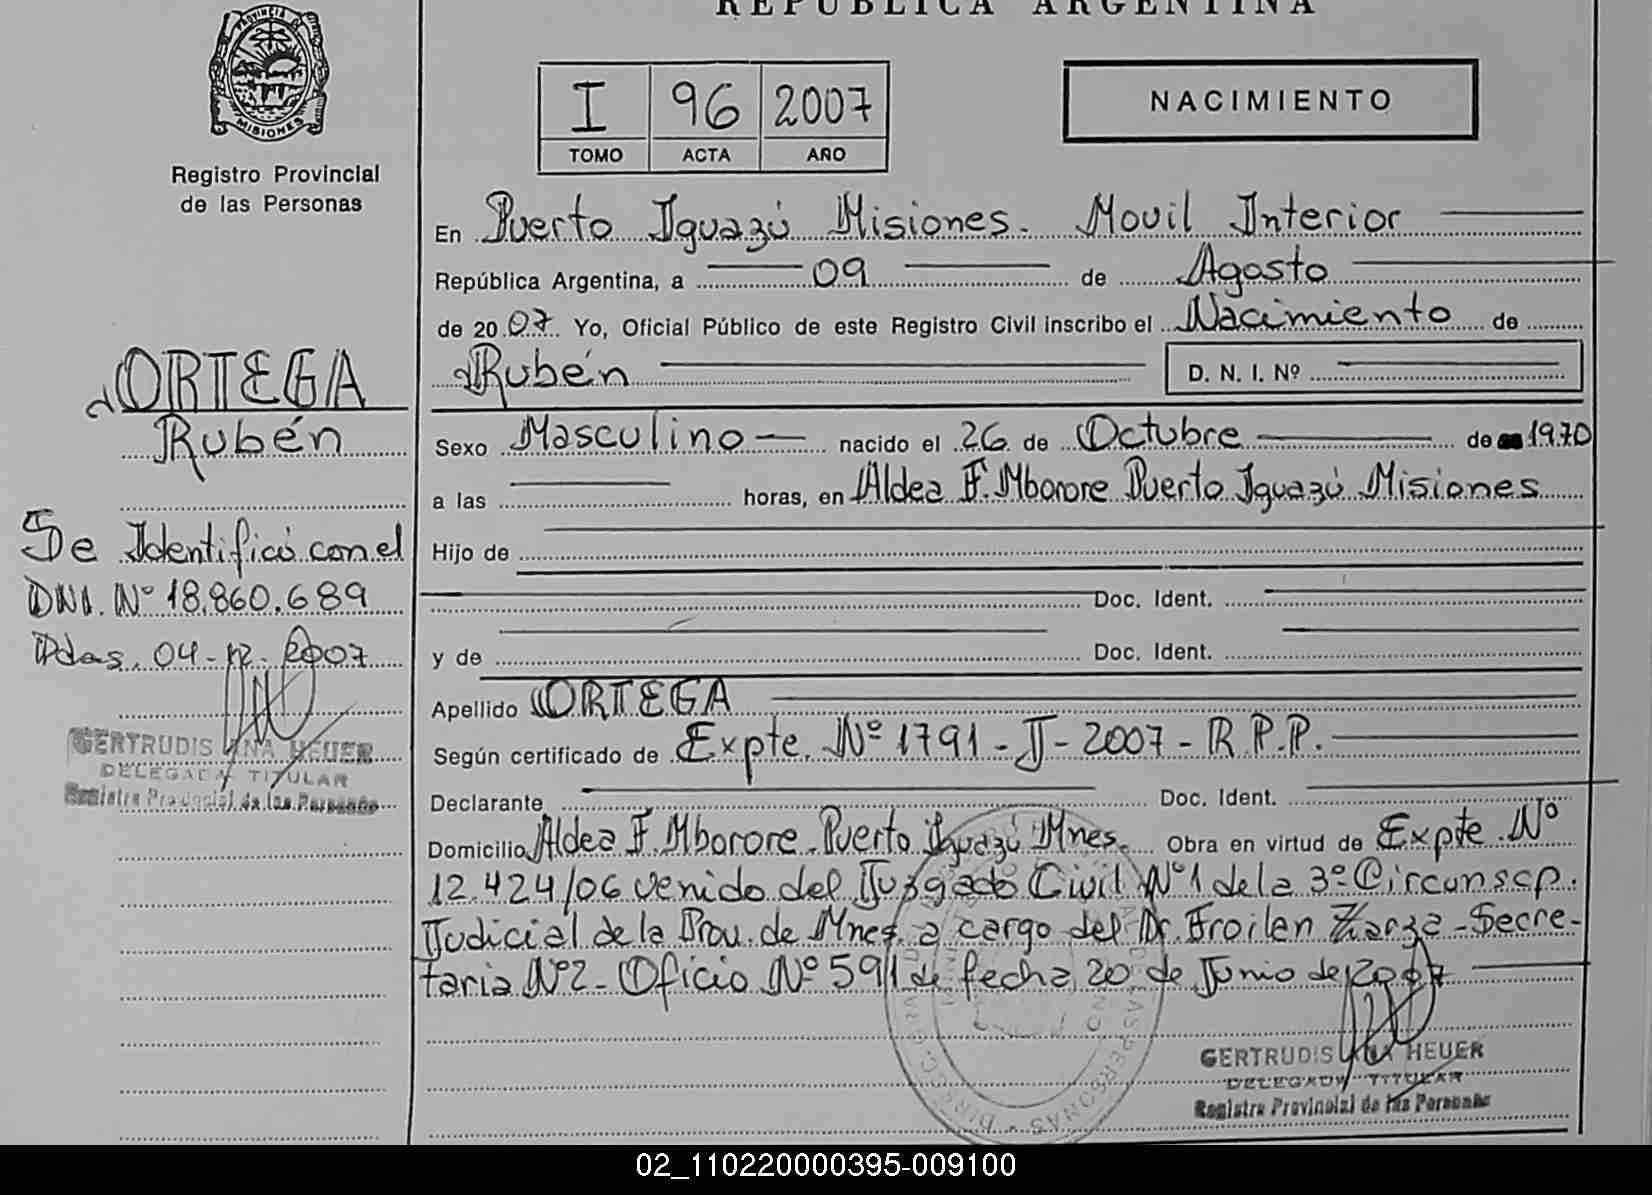 REPUBLICA ARGENTINA
PROVINCIA DE
MISIONES
Registro Provincial
de las Personas
I 96 2007
TOMO ACTA AÑO
NACIMIENTO
En Puerto Iguazú Misiones. Movil Interior
República Argentina, a 09 de Agosto
de 2007 Yo, Oficial Público de este Registro Civil inscribo el Nacimiento de
Rubén D. N. I. Nº
Sexo Masculino nacido el 26 de Octubre de 1970
a las horas, en Aldea F. Mborore Puerto Iguazú Misiones
Hijo de
Doc. Ident.
y de Doc. Ident.
Apellido ORTEGA
Según certificado de Expte. Nº 1791 - J - 2007 - R.P.P.
Declarante Doc. Ident.
Domicilio Aldea F. Mborore. Puerto Iguazú Mnes. Obra en virtud de Expte. Nº
12.424/06 venido del Juzgado Civil Nº1 de la 3º Circunscp.
Judicial de la Prov. de Mnes. a cargo del Dr. Froilen Zarza - Secre-
taria Nº2 - Oficio Nº 591 de fecha 20 de Junio de 2007
GERTRUDIS ANA HEUER
DELEGADA TITULAR
Registro Provincial de las Personas
ORTEGA
Rubén
Se Identificó con el
DNI. Nº 18.860.689
Pdas. 04-12-2007
GERTRUDIS ANA HEUER
DELEGADA TITULAR
Registro Provincial de las Personas
02_110220000395-009100